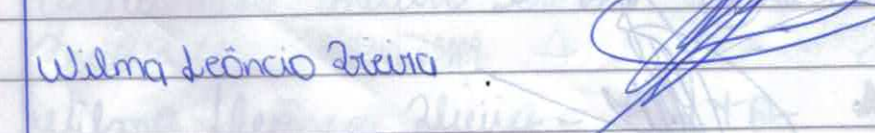 Wilma Leôncio Vieira